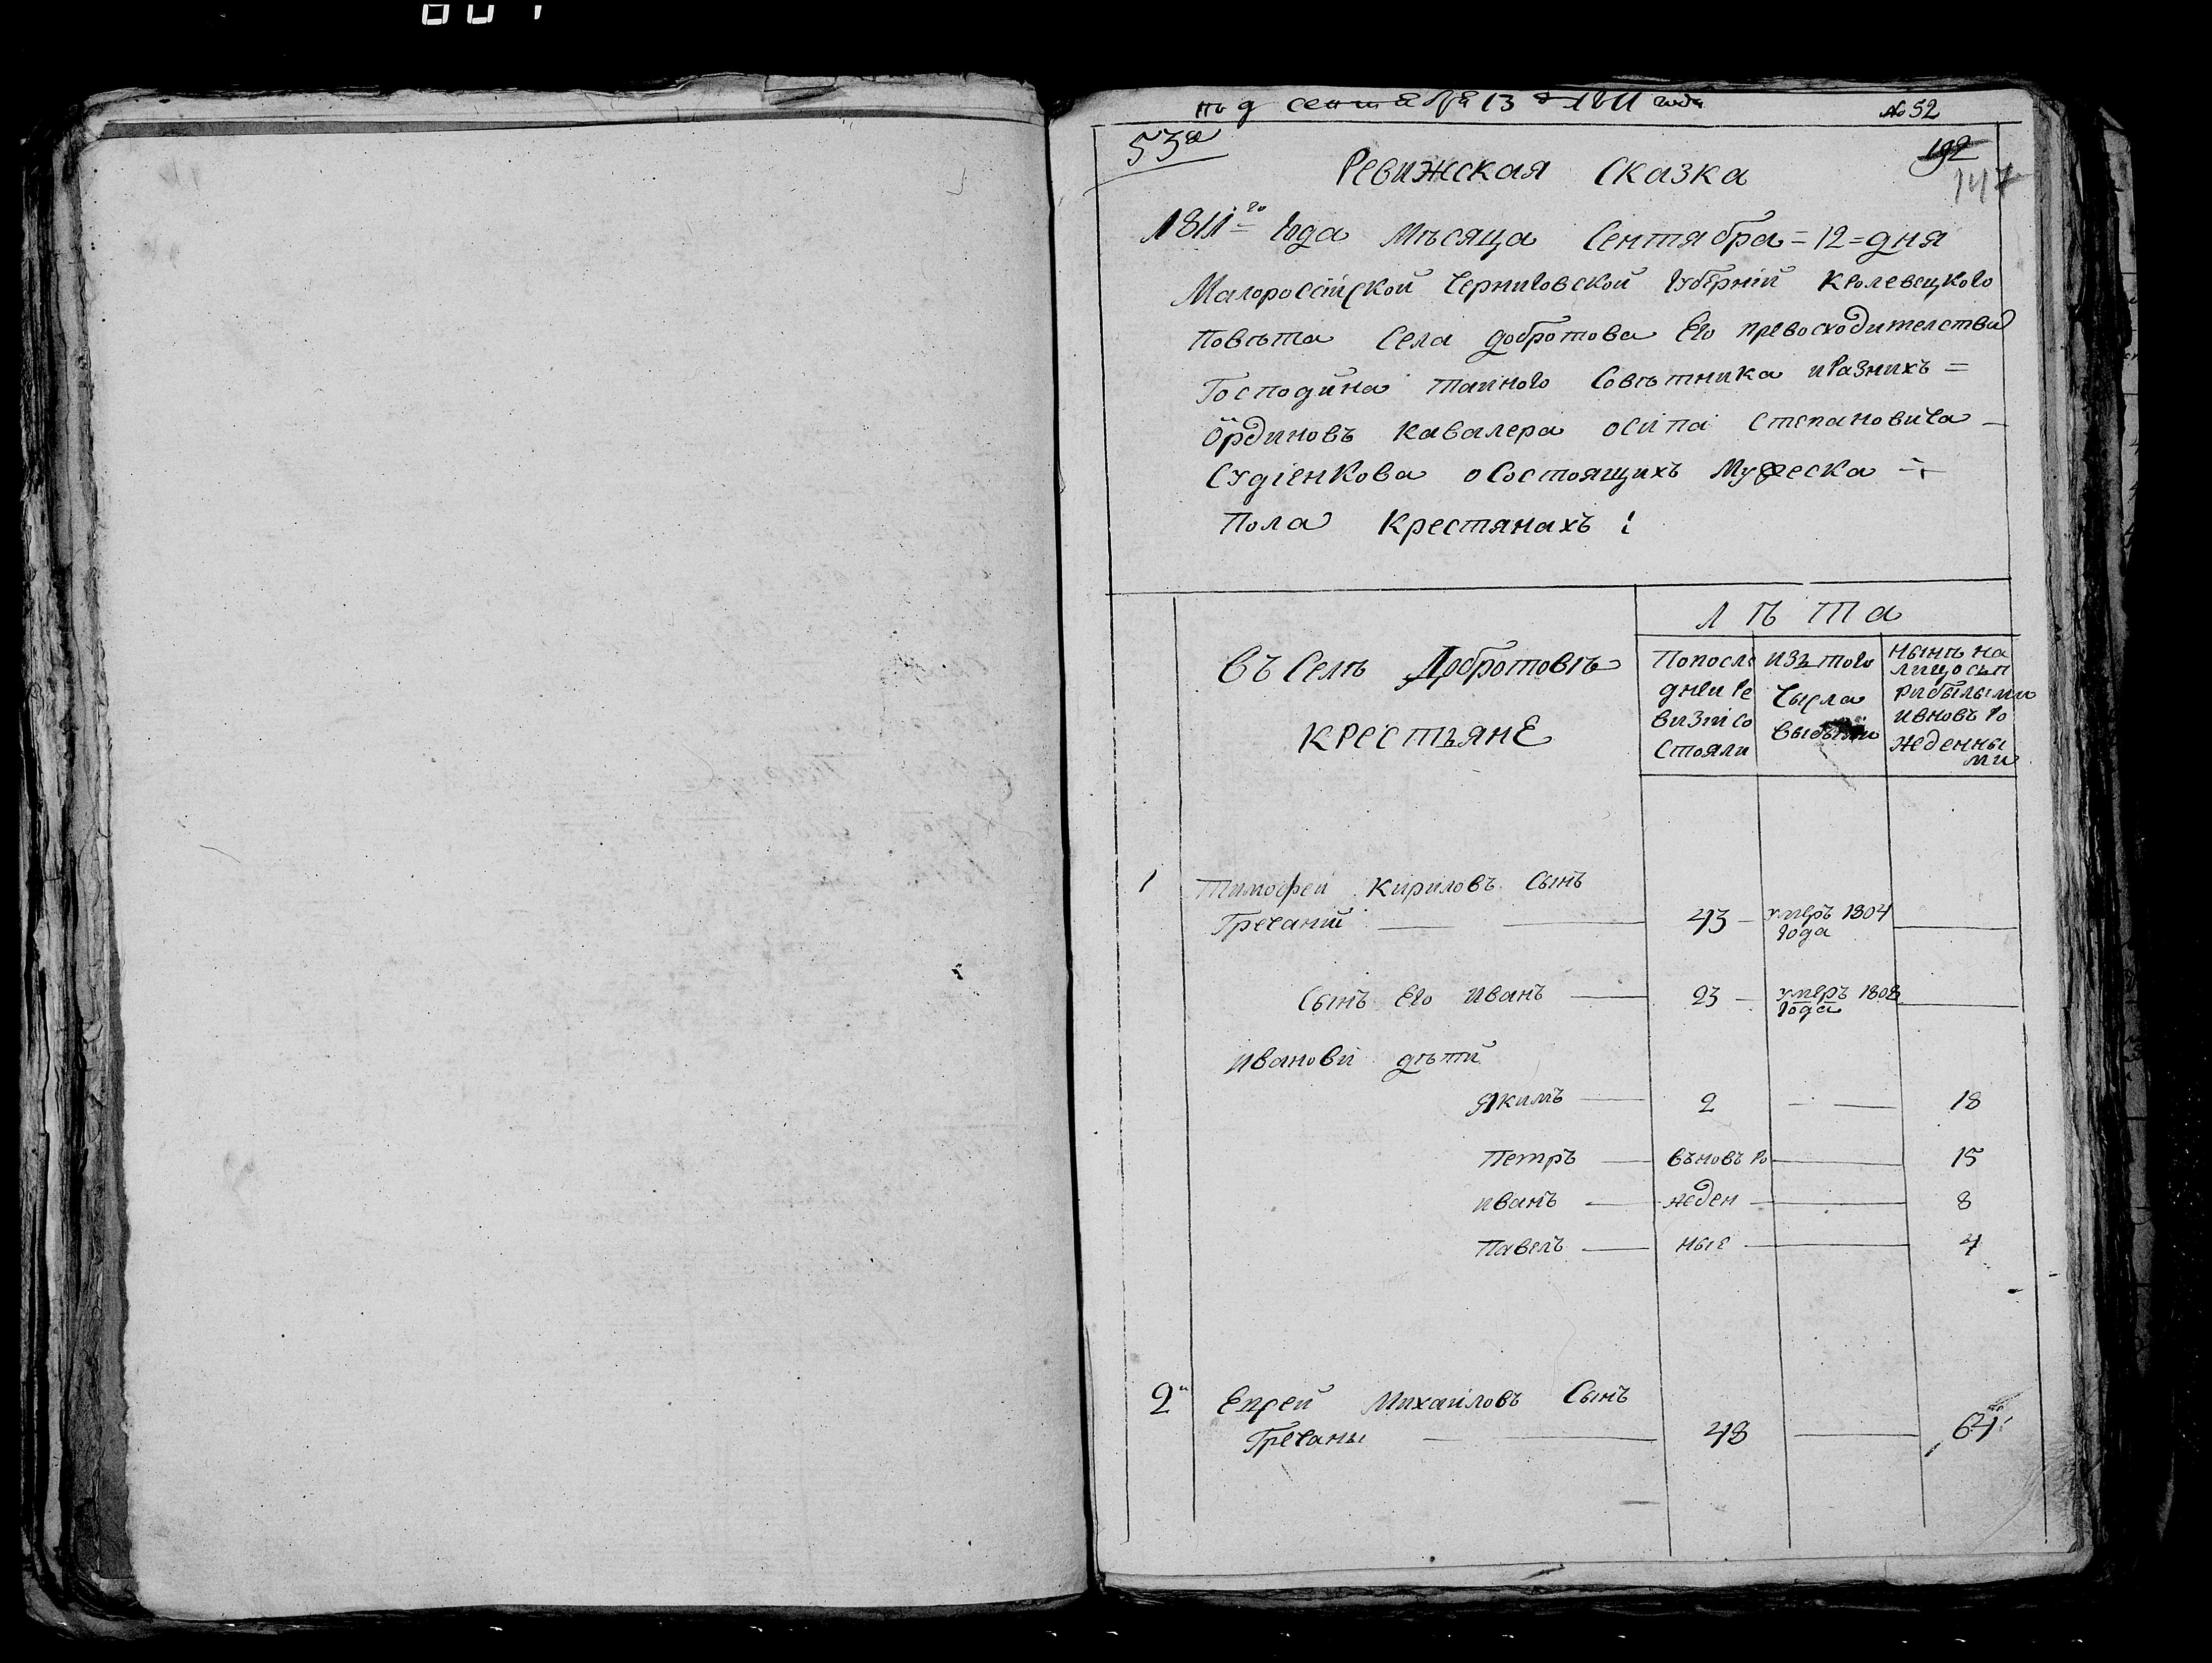 под сентября 13 д 1811 года
№ 52
53я
192
147
Ревижская Сказка
1811го Года Мѣсяца Сентября = 12 = дня
Малоросійской Черниговской Губерніи Кролевецкого
Повѣта Села Добротова Его превосходителства
Господина тайного Совѣтника и Разнихъ =
Ординовъ Кавалера Осипа Степановича
Судіенкова о Состоящихъ Мужеска
Пола Крестянахъ :
Въ Селѣ Добротовѣ
Крестьяне
Лѣта
Попослѣ
дней Ре
визіи Со
Стояли
Изъ того
Числа
Выбыли
Нынѣ на
лицо съп
рибылыми
и вновь Ро
жденны
ми
1 Тимофей Кириловъ Сынъ
Гречаний 43 умеръ 1804
Года
Сынъ Его Иванъ 23 умеръ 1808
Года
Иванови дѣти
Якимъ 2 18
Петръ въновъ Ро 15
Иванъ жден 8
Павелъ ные 4
2й Михайловъ Сынъ
Гречаны 48 64